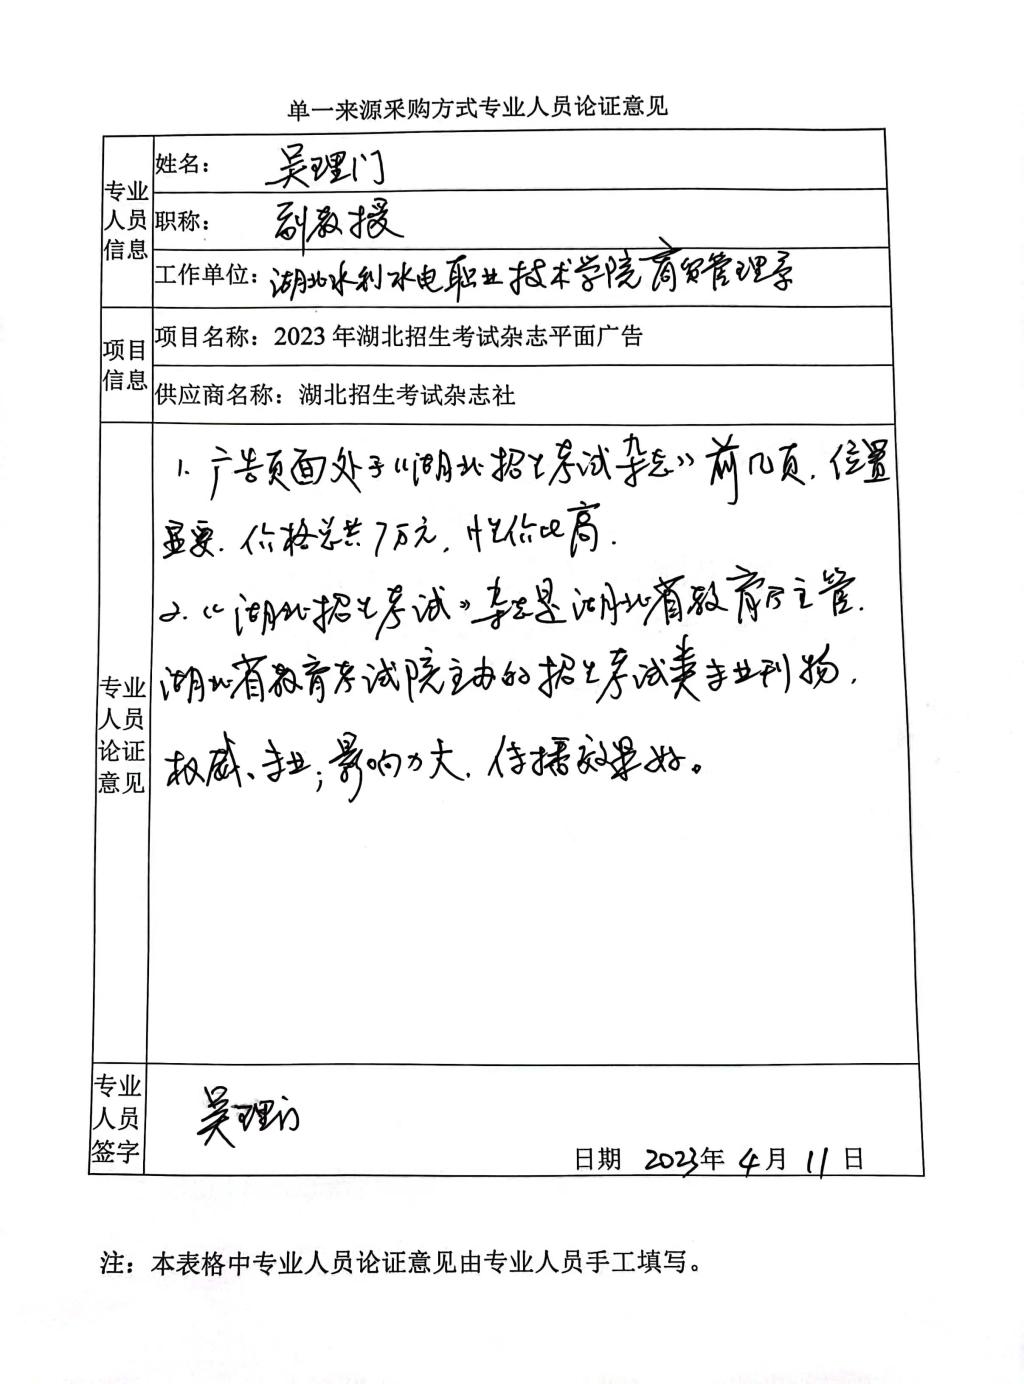 单一来源采购方式专业人员论证意见
专业人员信息
姓名： 吴理门
职称： 副教授
工作单位：湖北水利水电职业技术学院商贸管理系
项目信息
项目名称：2023年湖北招生考试杂志平面广告
供应商名称：湖北招生考试杂志社
专业人员论证意见
1. 广告页面处于《湖北招生考试杂志》前几页，位置
显要，价格总共7万元，性价比高.
2.《湖北招生考试》杂志是湖北省教育厅主管，
湖北省教育考试院主办的招生考试类专业刊物，
权威、专业；影响力大，传播效果好。
专业人员签字
吴理门
日期 2023年4月11日
注：本表格中专业人员论证意见由专业人员手工填写。